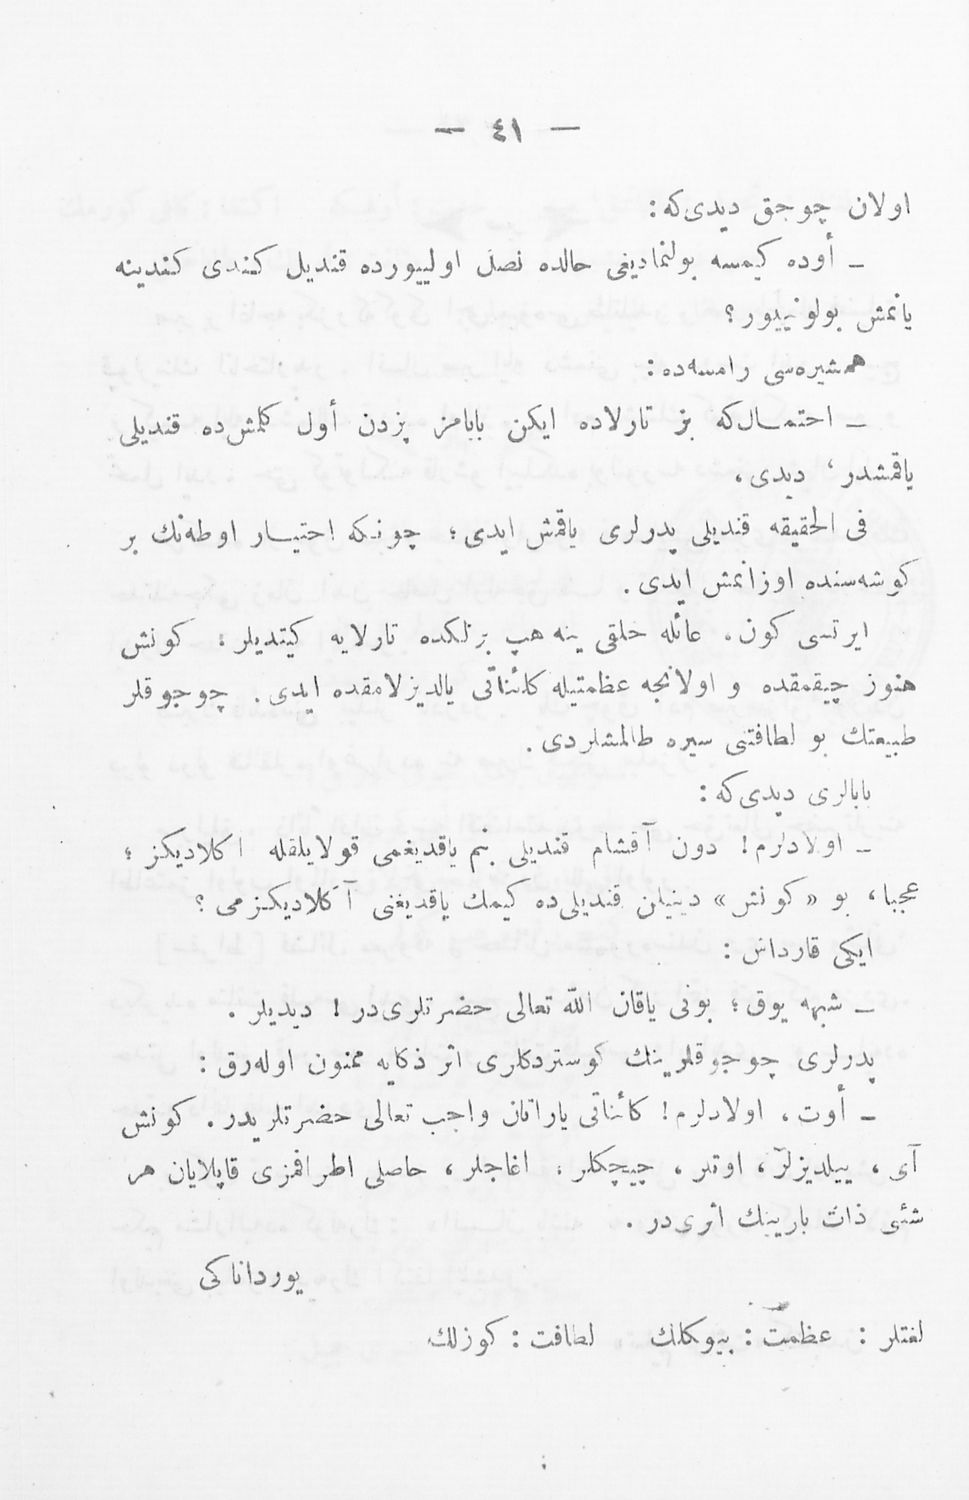 — ٤١ —
اولان چوجق دیدی‌که:
ـ أوده کیمسه بولنمادیغی حالده نصل اولییورده قندیل کندی کندینه
یانمش بولونییور؟
همشیره‌سی رامسه‌ده:
ـ احتمـال‌که بز تارلاده ایکن بابامز بزدن أول کلمش‌ده قندیلی
یاقمشدر، دیدی،
فی الحقیقه قندیلی پدرلری یاقمش ایدی؛ چونکه احتیـار اوطه‌نك بر
کوشه‌سنده اوزانمش ایدی.
ایرتسی کون، عائله خلقی ینه هپ برلکده تارلایه کیتدیلر: کونش
هنوز چیقمقده و اولانجه عظمتیله کائناتی یالدیزلامقده ایدی. چوجوقلر
طبیعتك بو لطافتنی سیره طالمشلردی.
بابالری دیدی‌که:
ـ اولادلرم! دون آقشام قندیلی بنم یاقدیغمی قولایلقله اکلادیکز؛
عجبا، بو «کونش» دینیلن قندیلی‌ده کیمك یاقدیغنی آکلادیکزمی؟
ایکی قارداش:
ـ شبهه یوق؛ بونی یاقان اللّه تعالی حضرتلری‌در! دیدیلر.
پدرلری چوجوقلرینك کوستردکلری اثر ذکایه ممنون اوله‌رق:
ـ أوت، اولادلرم! کائناتی یاراتان واجب تعالی حضرتلریدر. کونش
آی، ییلدیزلر، اوتلر، چیچکلر، اغاجلر، حاصلی اطرافمزی قاپلایان هر
شئی ذات بارینك اثری‌در.
یوردانا کی
لغتلر: عظمت: بیوکلك لطافت: کوزلك